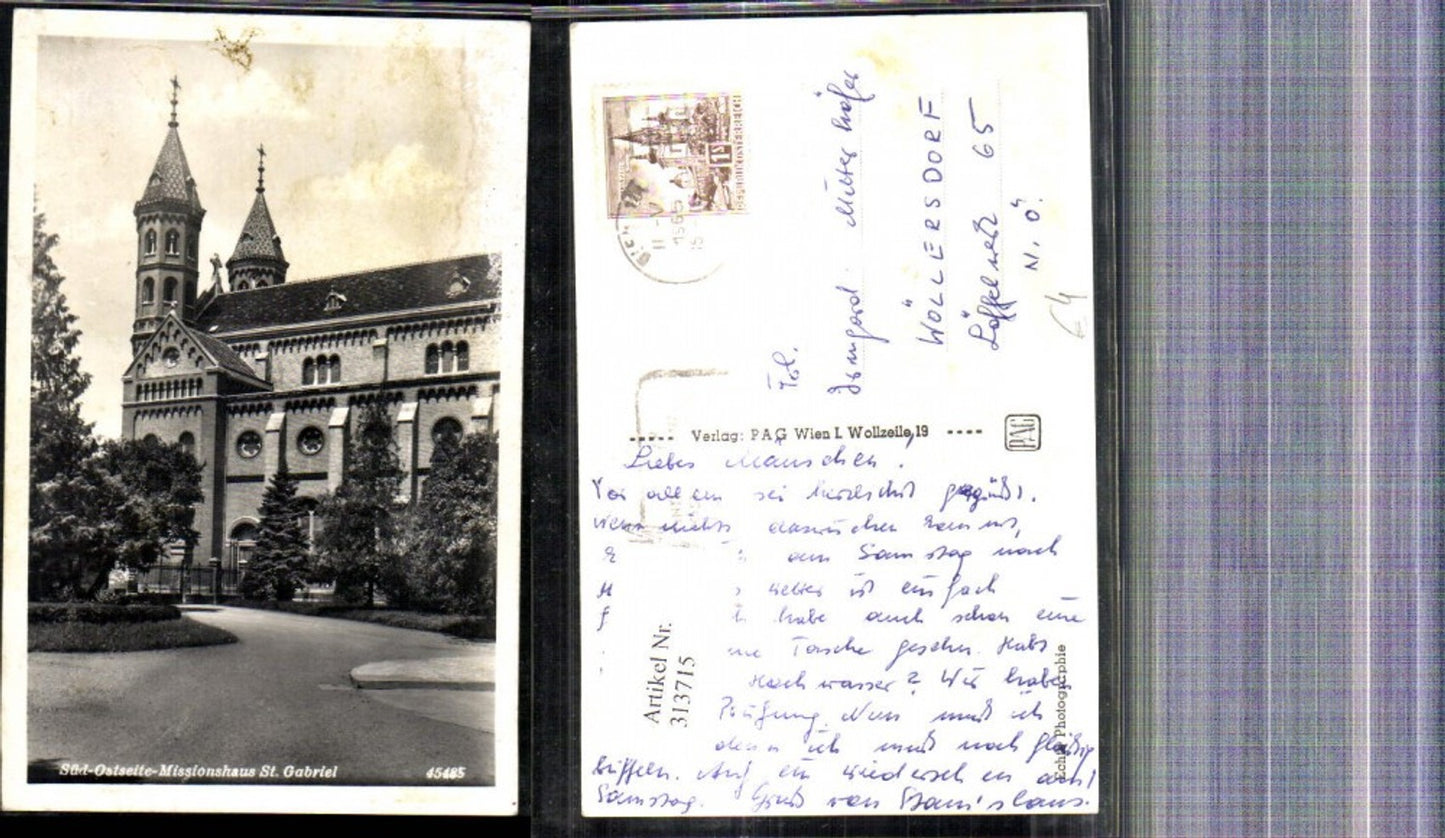 Süd-Ostseite-Missionshaus St. Gabriel 45485
1S
REPUBLIK ÖSTERREICH
11.-V
1965
15
Frl.
Irmgard Mitterhöfer
WÖLLERSDORF
Löffelwerk 65
N. Ö.
€ 4
Verlag: PAG Wien I. Wollzeile 19
PAG
Liebes Mäuschen!
Vor allem sei herzlichst gegrüßt.
Wenn nichts dazwischen kommt,
am Samstag nach
H Wetter ist einfach
f habe auch schon eine
Tasche gesehen. Habt
Hochwasser? Wir haben
Prüfung. Nun muß ich
denn ich muß noch fleißig
büffeln. Auf ein Wiedersehen am
Samstag. Gruß von Stanislaus.
Artikel Nr.
313715
Echte Photographie